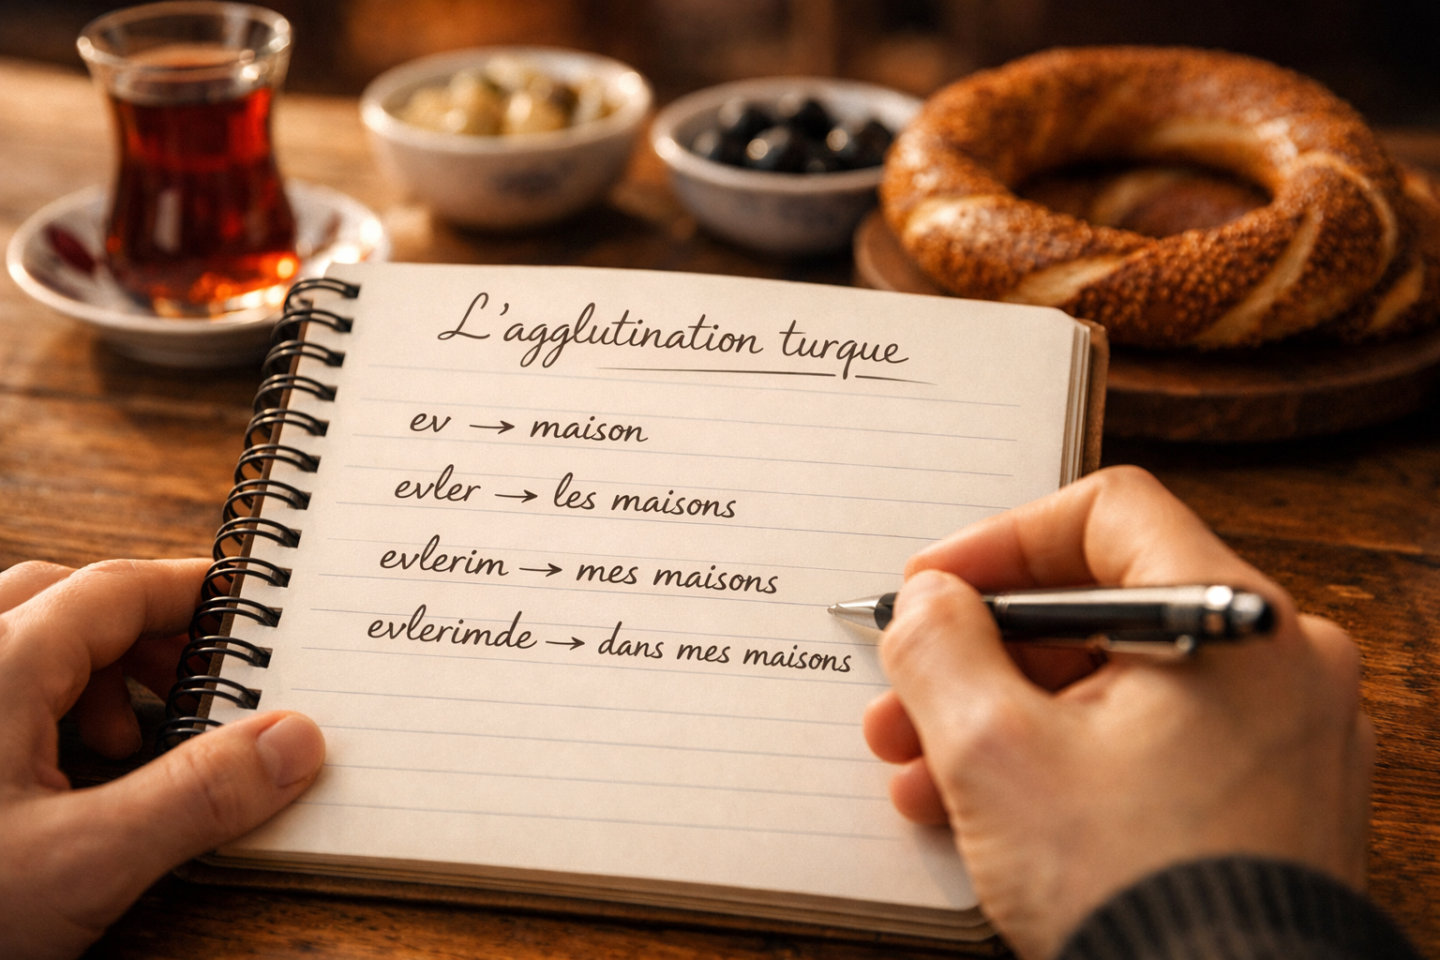 L'agglutination turque
ev → maison
evler → les maisons
evlerim → mes maisons
evlerimde → dans mes maisons